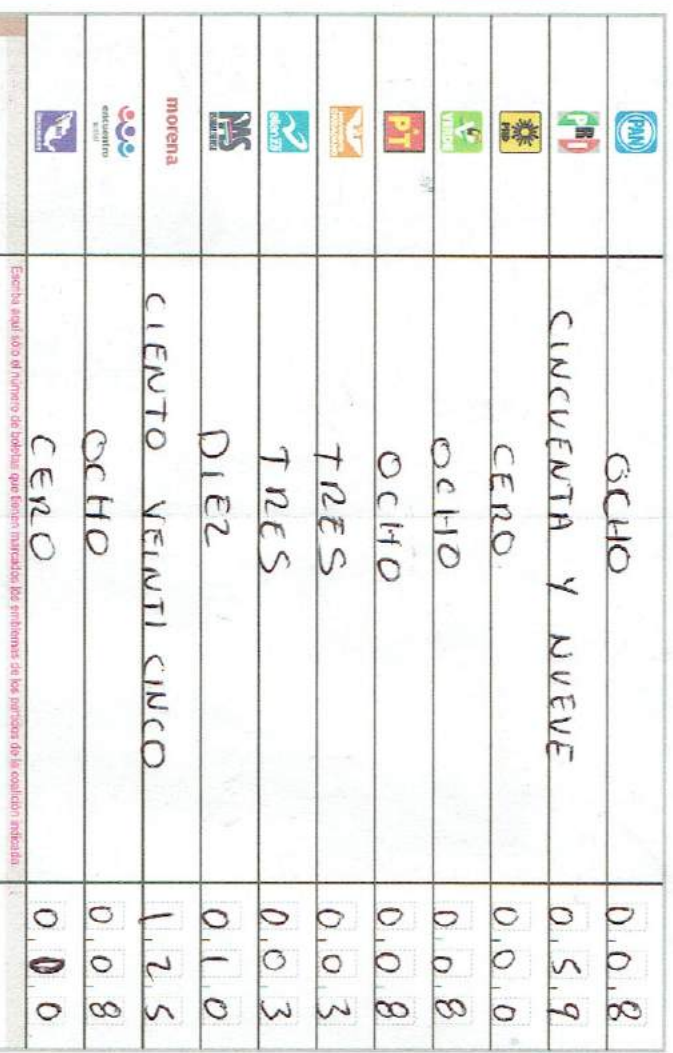 PAN OCHO 0 0 8
PRI CINCUENTA Y NUEVE 0 5 9
PRD CERO 0 0 0
VERDE OCHO 0 0 8
PT OCHO 0 0 8
TRES 0 0 3
alianza TRES 0 0 3
MAS DIEZ 0 1 0
morena CIENTO VEINTI CINCO 1 2 5
encuentro social OCHO 0 0 8
CERO 0 0 0
Escriba aquí sólo el número de boletas que tienen marcados los emblemas de los partidos de la coalición indicada.